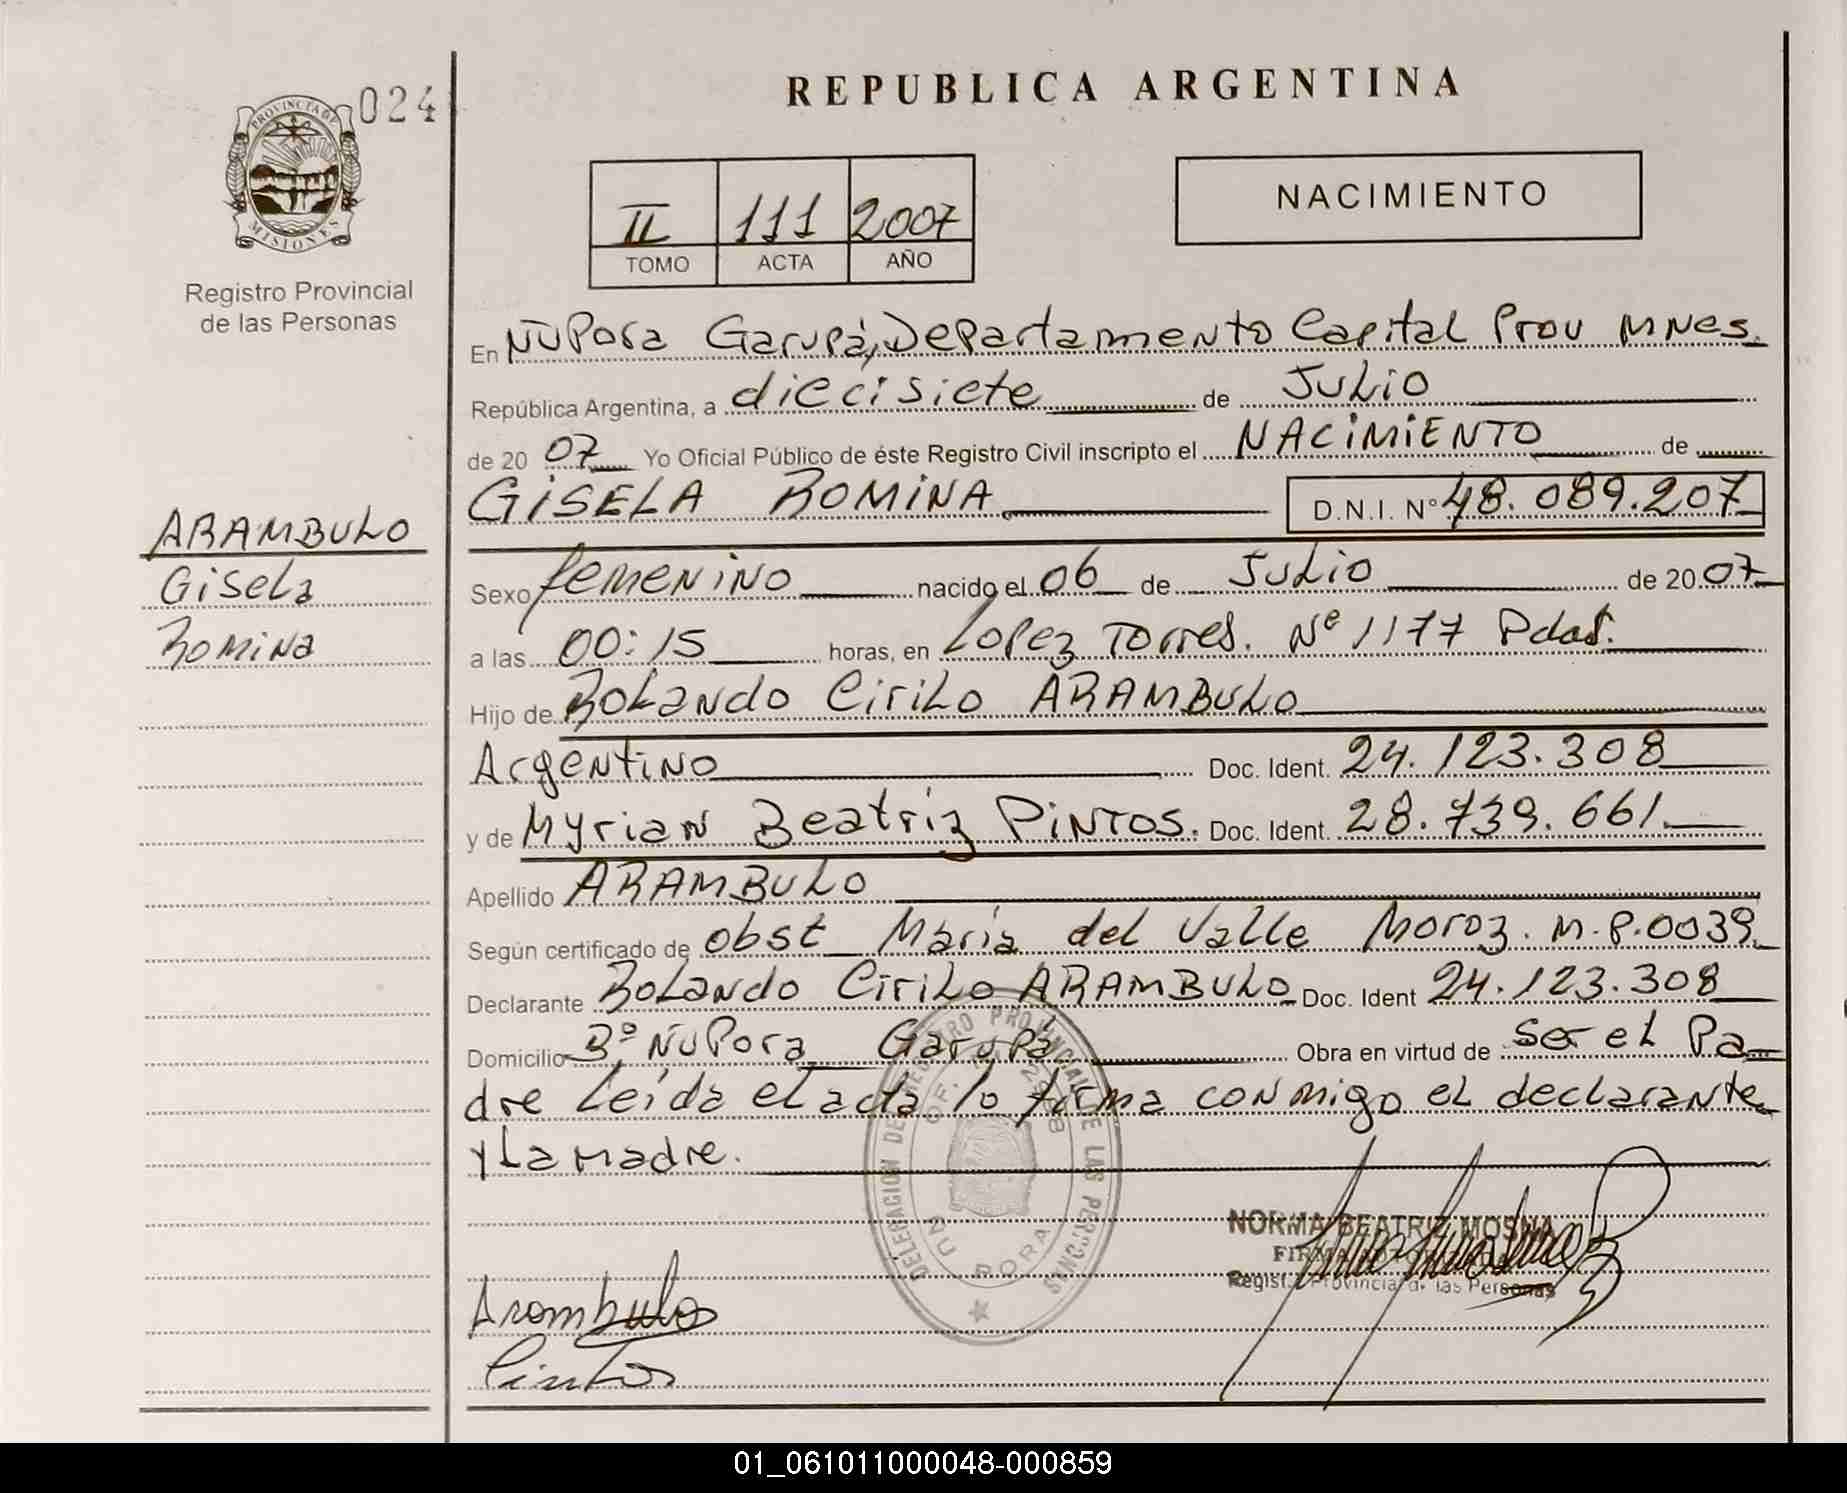 REPUBLICA ARGENTINA
024
PROVINCIA DE
MISIONES
Registro Provincial
de las Personas
II 111 2007
TOMO ACTA AÑO
NACIMIENTO
En Ñu Pora Garupá, Departamento Capital Prov Mnes.
República Argentina, a diecisiete de Julio
de 2007 Yo Oficial Público de éste Registro Civil inscripto el NACIMIENTO de
GISELA ROMINA D.N.I. N° 48.089.207
ARAMBULO
Gisela
Romina
Sexo femenino nacido el 06 de Julio de 2007
a las 00:15 horas, en Lopez Torres. Nº 1177 Pdas.
Hijo de Rolando Cirilo ARAMBULO
Argentino Doc. Ident. 24.123.308
y de Myrian Beatriz Pintos. Doc. Ident. 28.739.661.
Apellido ARAMBULO
Según certificado de obst Maria del Valle Moroz. M.P.0039
Declarante Rolando Cirilo ARAMBULO Doc. Ident 24.123.308
Domicilio Bº Ñu Pora Garupá Obra en virtud de ser el Pa-
dre Leída el acta lo firma conmigo el declarante
y La madre.
DELEGACION DE REGISTRO PROVINCIAL DE LAS PERSONAS
ÑU PORA
NORMA BEATRIZ MOSNA
Regist. Provincial de las Personas
Arambulo
Pintos
01_061011000048-000859